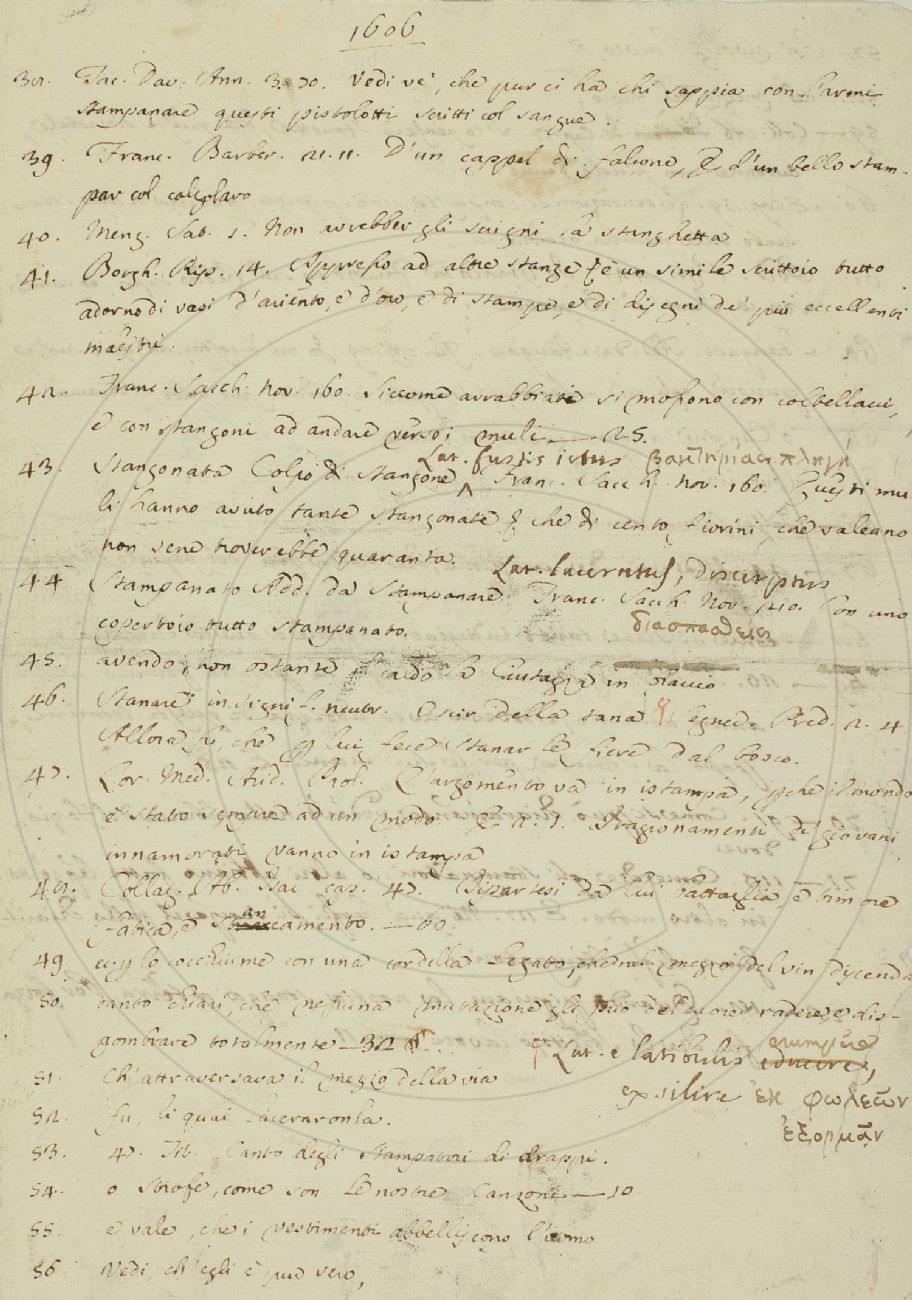 1606
38. Tac. Dav. Ann. 3. 70. Vedi ve', che pur ci ha chi sappia con l'armi
stampanare questi pistolotti scritti col sangue.
39. Franc. Barber. 21. 11. D'un cappel di falcone, E d'un bello stam-
par col calzolaro
40. Menz. Sat. 1. Non avrebber gli scrigni la stinghetta
41. Borgh. Rip. 14. Appresso ad altre stanze è un simile scrittoio tutto
adorno di vasi d'ariento, e d'oro, e di stampe, e di disegni de' più eccellenti
maestri.
42. Franc. Sacch. nov. 160. Siccome arrabbiati si mossono con coltellacci,
e con stangoni ad andare verso i muli — 25.
Lat. fustis ictus βακτηρίας πληγή
43. Stangonata Colpo di stangone Franc. Sacch. nov. 160. Questi mu-
li hanno avuto tante stangonate, che di cento fiorini, che valeano
non sene troverebbe quaranta.
Lat. laceratus, discerptus
44. Stampanato Add. da Stampanare. Franc. Sacch. Nov. 210. Con uno
copertoio tutto stampanato.
διασπασθείς
45. avendo, non ostante il caldo la in staccio
46. Stanare in signif. neutr. Uscir della tana Segner. Pred. 2. 4
Allora fu, che per lui fece stanar le fiere dal bosco.
47. Lor. Med. Arid. Prol. L'argomento va in istampa, perchè il mondo
è stato sempre ad un modo. E 2. 1. I ragionamenti de' giovani
innamorati vanno in istampa
48. Collaz. Ab. Isac cap. 47. Ripartesi da lui battaglia e timore
fatica, e stancamento. — 60.
49. collo cocchiume con una cordella legato, che nel mezzo del vin discenda
50. tanto chiari, che nessuna mutazione gli può del cuore radere, e dis-
gombrare totalmente — 32
Lat. e latibulis erumpere educere,
exsilire ἐκ φωλεῶν
ἐξορμᾶν
51. Ch'attraversava il mezzo della via
52. fu, li quai laceraronla.
53. 47. Tit. Canto degli Stampatori di drappi.
54. o Strofe, come son le nostre Canzoni — 10
55. e vale, che i vestimenti abbelliscono l'uomo
56. Vedi, ch'egli è pur vero,